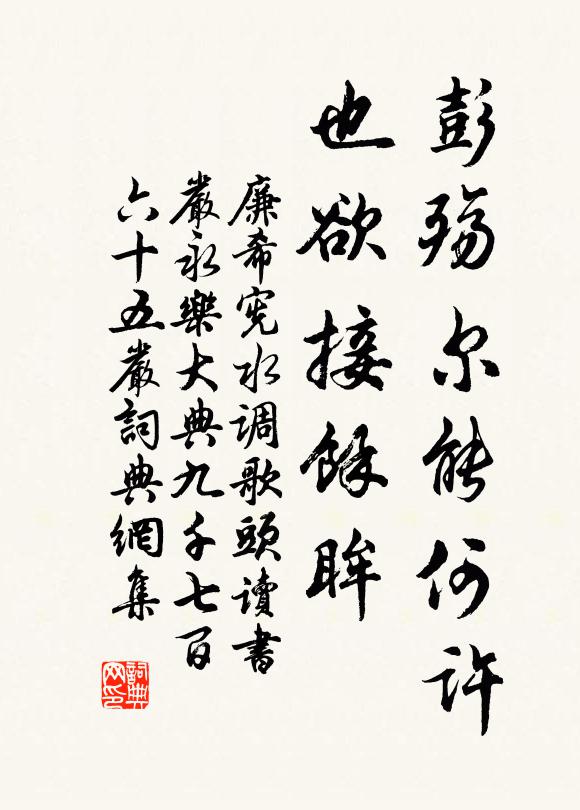 彭殤尔能何許
也欲接餘眸
廉希宪水调歌頭讀書
嚴永樂大典九千七百
六十五嚴詞典網集
詞典網印